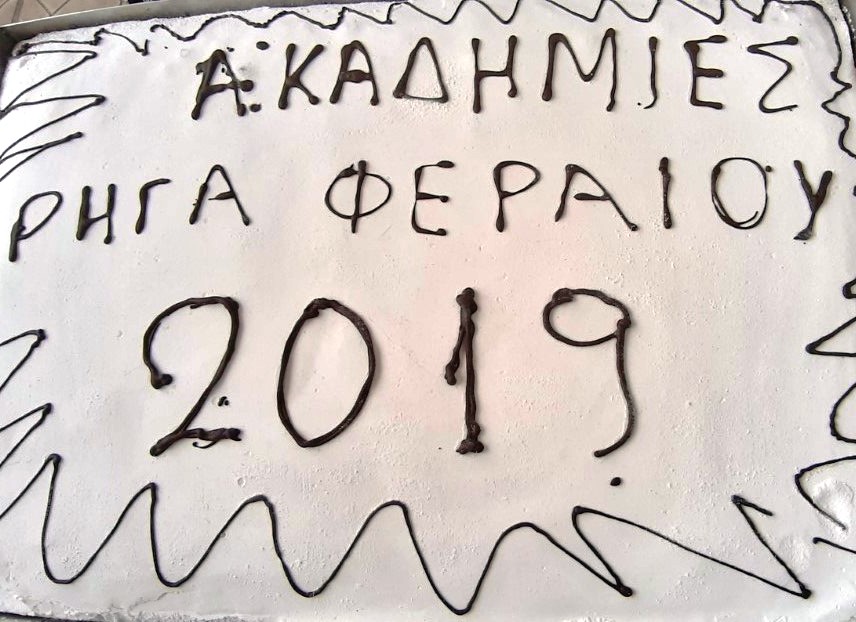 ΑΚΑΔΗΜΙΕΣ
ΡΗΓΑ ΦΕΡΑΙΟΥ
2019